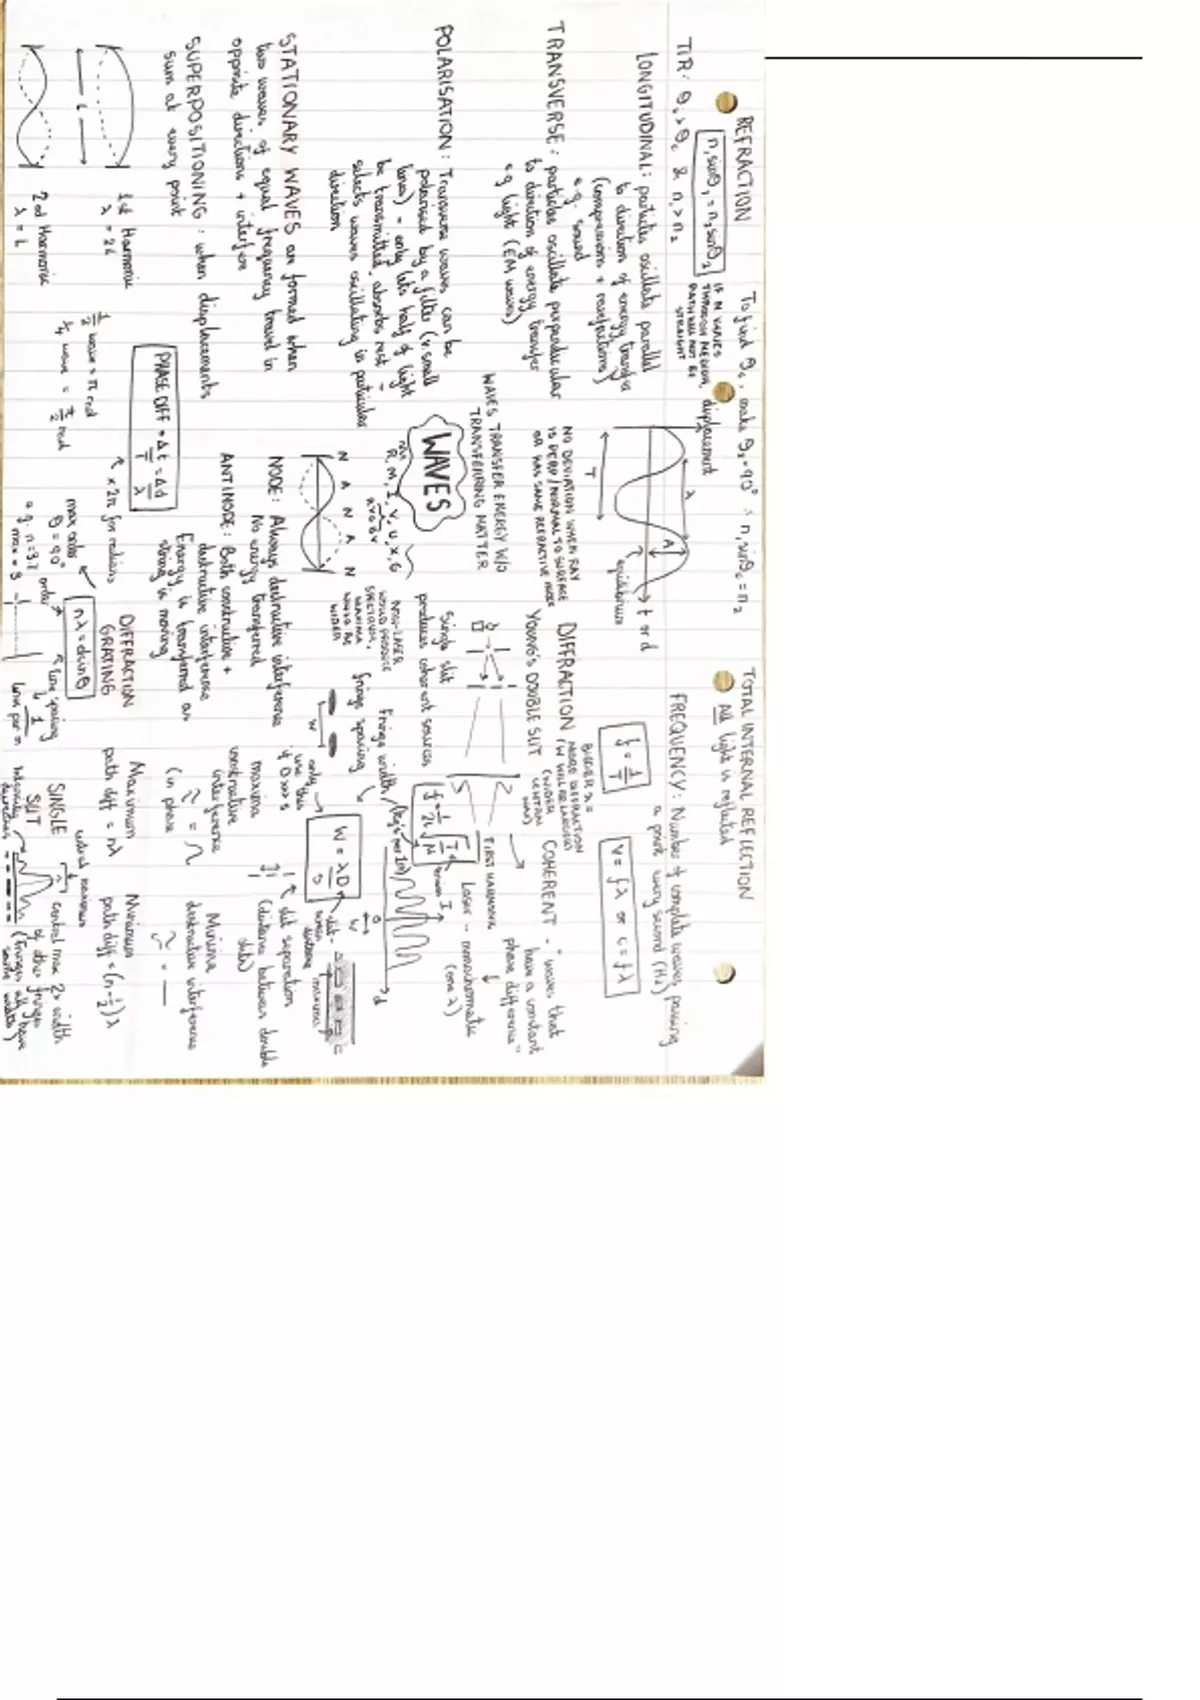 REFRACTION
n₁sinθ₁ = n₂sinθ₂
IF N VARIES
THROUGH MEDIUM,
PATH WILL NOT BE
STRAIGHT
To find θc, make θ₂ = 90° ∴ n₁sinθc = n₂
TIR: θ₁ > θc & n₁ > n₂
TOTAL INTERNAL REFLECTION
All light is reflected
LONGITUDINAL: particles oscillate parallel
to direction of energy transfer
(compressions + rarefactions)
e.g. sound
TRANSVERSE: particles oscillate perpendicular
to direction of energy transfer
e.g. light (EM waves)
displacement
λ
A
t or d
equilibrium
T
FREQUENCY: Number of complete waves passing
a point every second (Hz)
f = 1/T
v = fλ or c = fλ
NO DEVIATION WHEN RAY
IS PERP/NORMAL TO SURFACE
OR HAS SAME REFRACTIVE INDEX
WAVES TRANSFER ENERGY W/O
TRANSFERRING MATTER
WAVES
R, M, I, V, U, X, G
ROYGBV
POLARISATION: Transverse waves can be
polarised by a filter (v. small
lines) - only lets half of light
be transmitted, absorbs rest -
selects waves oscillating in particular
direction
DIFFRACTION
BIGGER λ =
MORE DIFFRACTION
(W WILL BE LARGER)
(WIDER
CENTRAL
MAX)
COHERENT - "waves that
have a constant
phase difference"
YOUNG'S DOUBLE SLIT
Single slit
produces coherent sources
FIRST HARMONIC
Laser - monochromatic
(one λ)
f = 1/2L √T/μ
(kg/s per 1m)
NON-LASER
WOULD PRODUCE
SPECTRUM,
MAXIMA
WOULD BE
WIDER
Fringe width
fringe spacing
I
d
w
W = λD/s
only this
use this
if D >>> s
slit-
screen
distance
maximums
slit separation
(distance between double
slits)
STATIONARY WAVES are formed when
two waves of equal frequency travel in
opposite directions + interfere
N A N A N
NODE: Always destructive interference
No energy transferred
ANTINODE: Both constructive +
destructive interference
Energy is transferred as
string is moving
SUPERPOSITIONING: when displacements
sum at every point
PHASE DIFF = Δt/T = Δd/λ
× 2π for radians
1/2 wave = π rad
1/4 wave = π/2 rad
L
1st Harmonic
λ = 2L
2nd Harmonic
λ = L
maxima
constructive
interference
(in phase)
Minima
destructive interference
Maximum
path diff = nλ
Minimum
path diff = (n-1/2)λ
DIFFRACTION
GRATING
nλ = dsinθ
max order
θ = 90°
e.g. n=3.2
max = 3
order
line spacing
1/lines per m
SINGLE
SLIT
central maximum
central max 2x width
of other fringes
(fringes all have
same width)
intensity
decreases